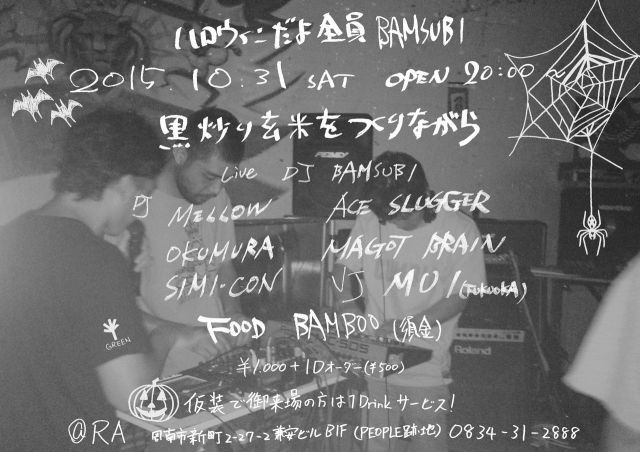 ハロウィンだよ全員 BAMSUBI
2015.10.31 SAT OPEN 20:00~
黒炒り玄米をつくりながら
Live DJ BAMSUBI
DJ MELLOW ACE SLUGGER
OKUMURA MAGOT BRAIN
SIMI-CON VJ MUI (FUKUOKA)
FOOD BAMBOO (須金)
GREEN
¥1.000+1Dオーダー(¥500)
仮装で御来場の方は1Drinkサービス!
@RA 周南市新町2-27-2 兼安ビルB1F (PEOPLE跡地) 0834-31-2888
Roland